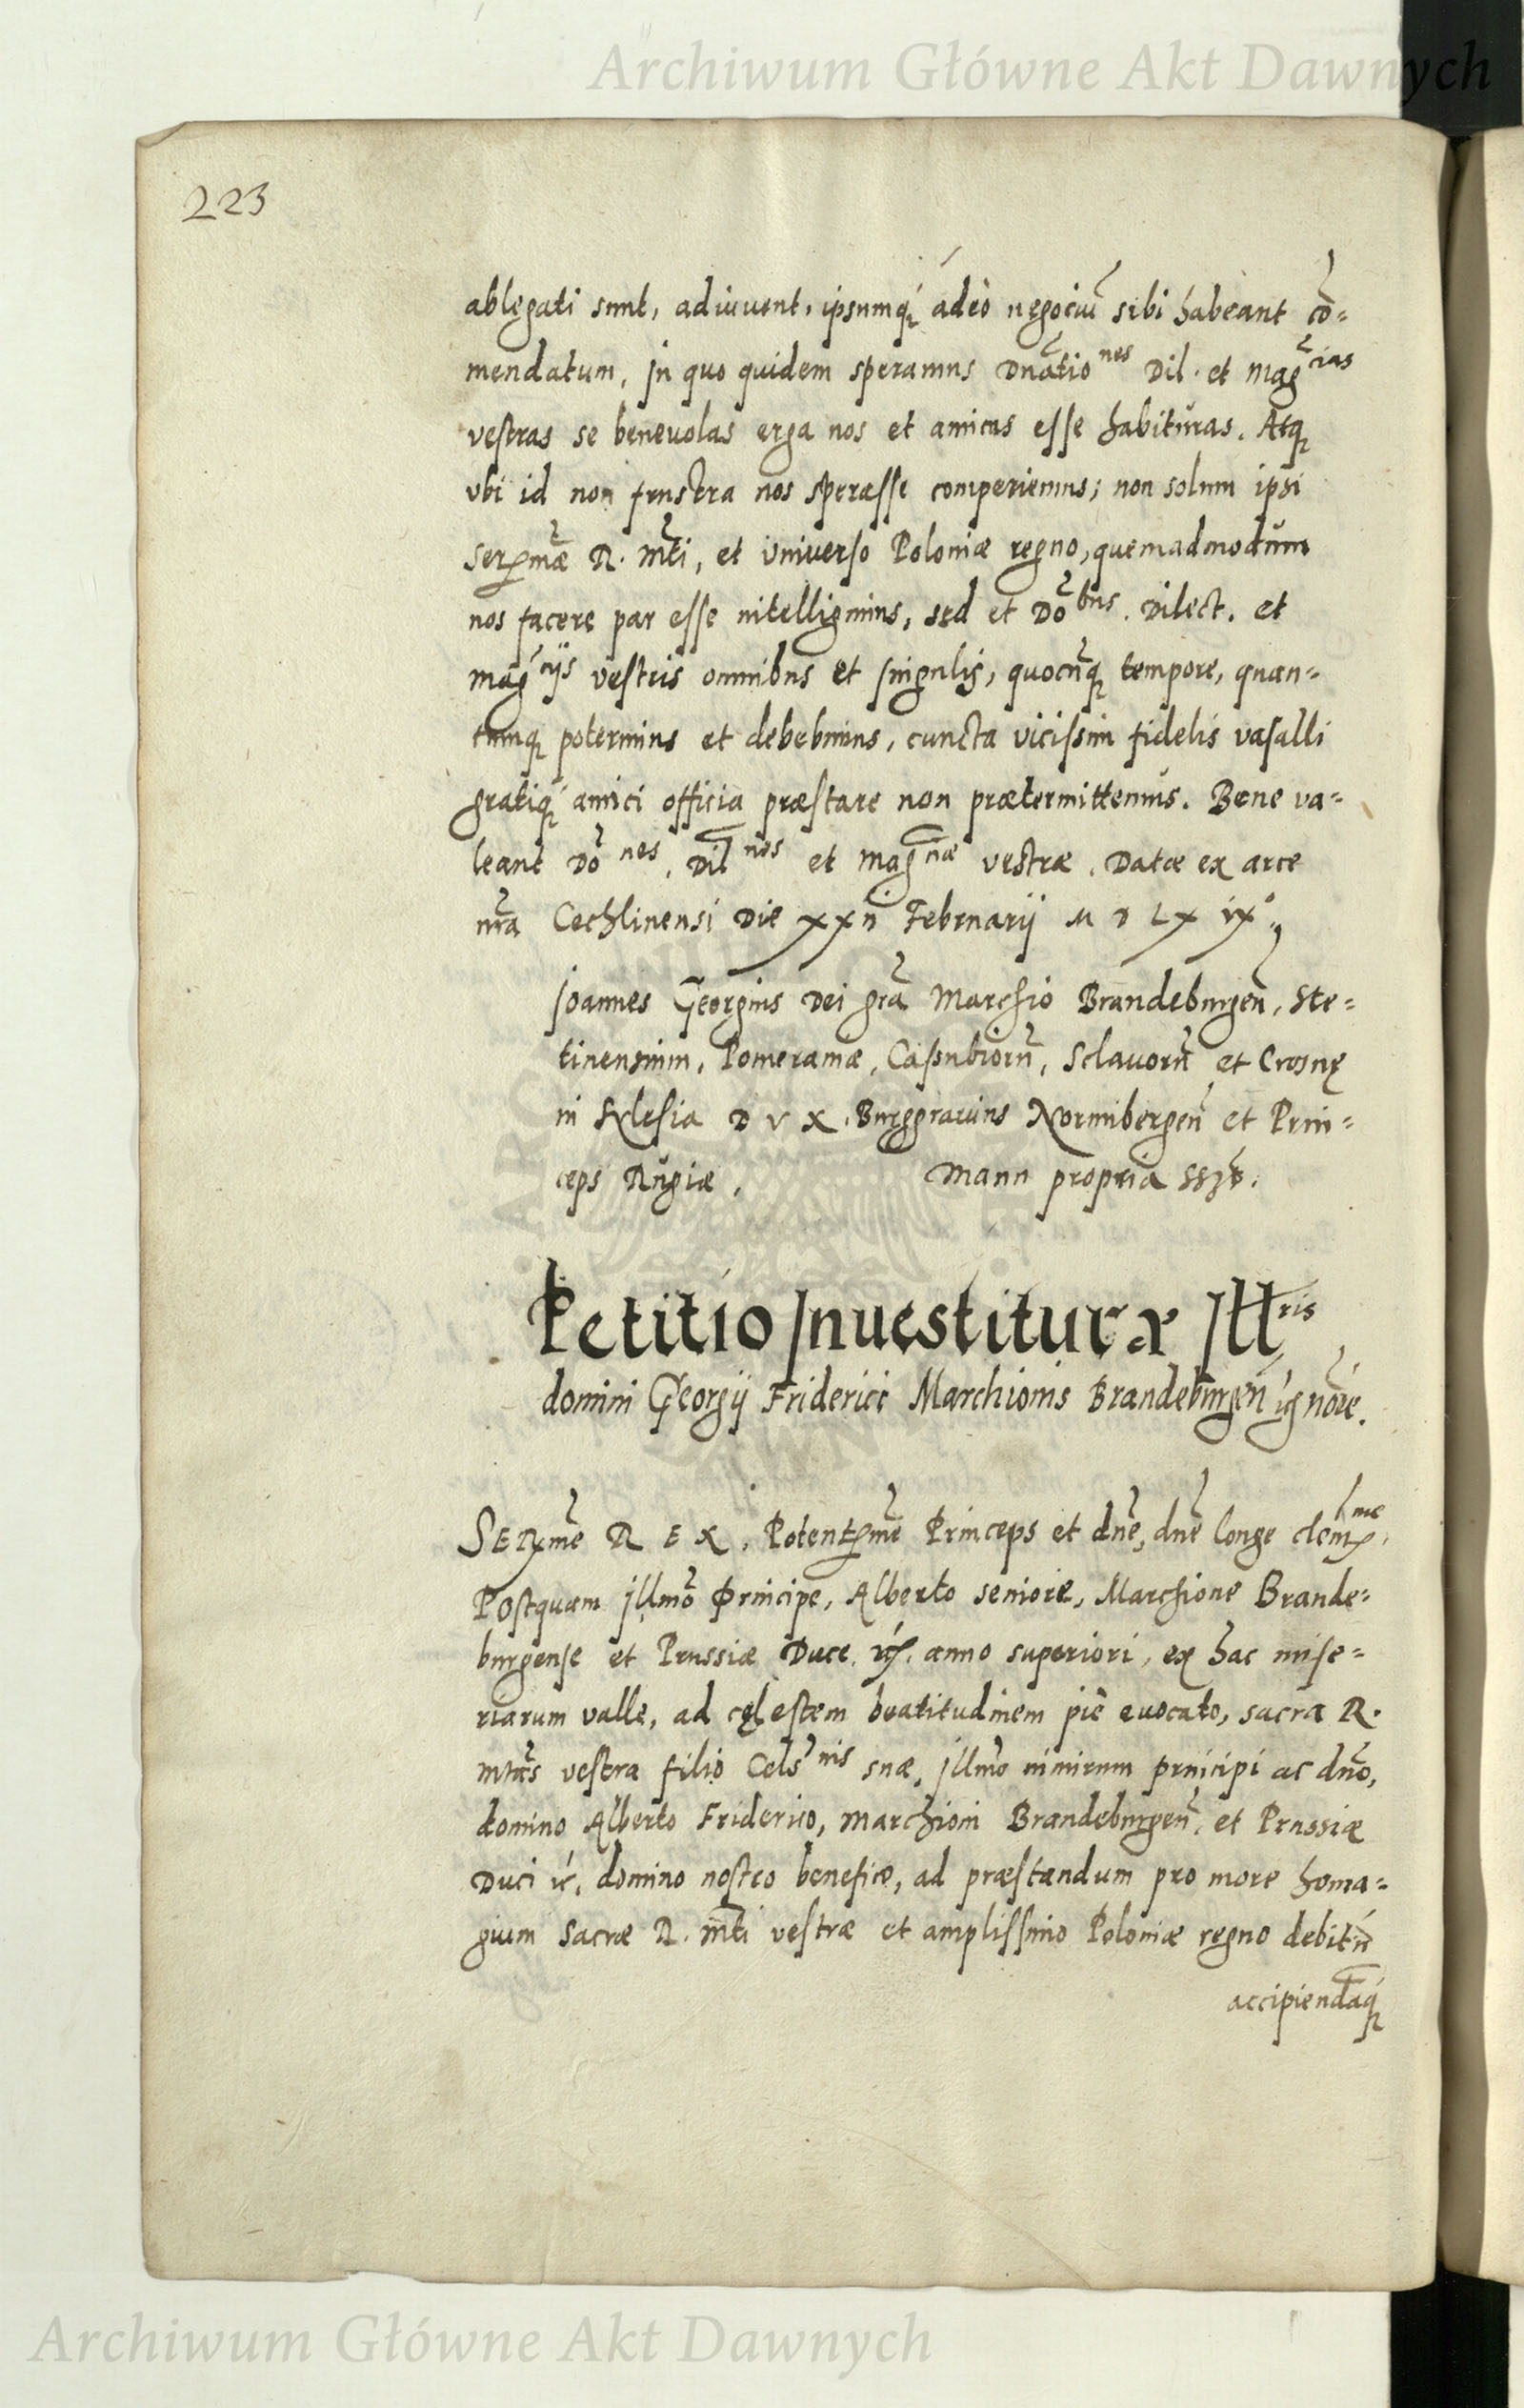 Archiwum Główne Akt Dawnych
223
ablegati sunt, adiuuent, ipsumq́ꝫ adeò negociũ sibi habeant cõ=
mendatum, in quo quidem speramus Dnãtioⁿᵉˢ Dil. et Magᶜⁱᵃˢ
vestras se beneuolas erga nos et amicas esse habituras. Atqꝫ
vbi id non frustra nos sperasse comperiemus; non solum ipsi
Serᵐãe R. Mti, et vniuerso Poloniæ regno, quemadmodum
nos facere par esse intelligimus, sed et Dõbus. Dilect. et
magᶜⁱⁱˢ vestris omnibus et singulis, quocũqꝫ tempore, quan=
tumqꝫ poterimus et debebimus, cuncta vicissim fidelis vasalli
gratiq́ꝫ amici officia præstare non prætermittemus. Bene va=
leant Dõnes, Dilnes et Magniæ vestræ. Datæ ex arce
nr̃a Cechlinensi Die xxii Februarij M D LX ix°,
Joannes Georgius Dei grã Marchio Brandeburgeñ, Ste=
tinensium, Pomeraniæ, Cassubiorũ, Sclauorũ et Crosnę
in Sylesia D V X. Burggrauius Norinibergeñ et Prin=
ceps Rugiæ. Manu propria sszt.
Petitio Inuestituræ Illʳⁱˢ
domini Georgij Friderici Marchionis Brandeburgeñ ig nõie.
SERᵐẽ R E X, Potentᵐẽ Princeps et dñe, dñe longe clemᵐᵉ,
Postquam illmõ Principe, Alberto seniore, Marchione Brande=
burgense et Prussiæ Duce, ꝛc. anno superiori, ex hac mise=
riarum valle, ad cęlestem beatitudinem piè euocato, sacra R.
Mtãs vestra filio Celsⁿⁱˢ suæ, illmo nimirum principi ac dño,
domino Alberto Friderico, Marchioni Brandeburgeñ, et Prussiæ
Duci ꝛc, domino nostro beneficæ, ad præstandum pro more homa=
gium Sacræ R. Mti vestræ et amplissimo Poloniæ regno debitũ
accipiendaq́ꝫ
Archiwum Główne Akt Dawnych